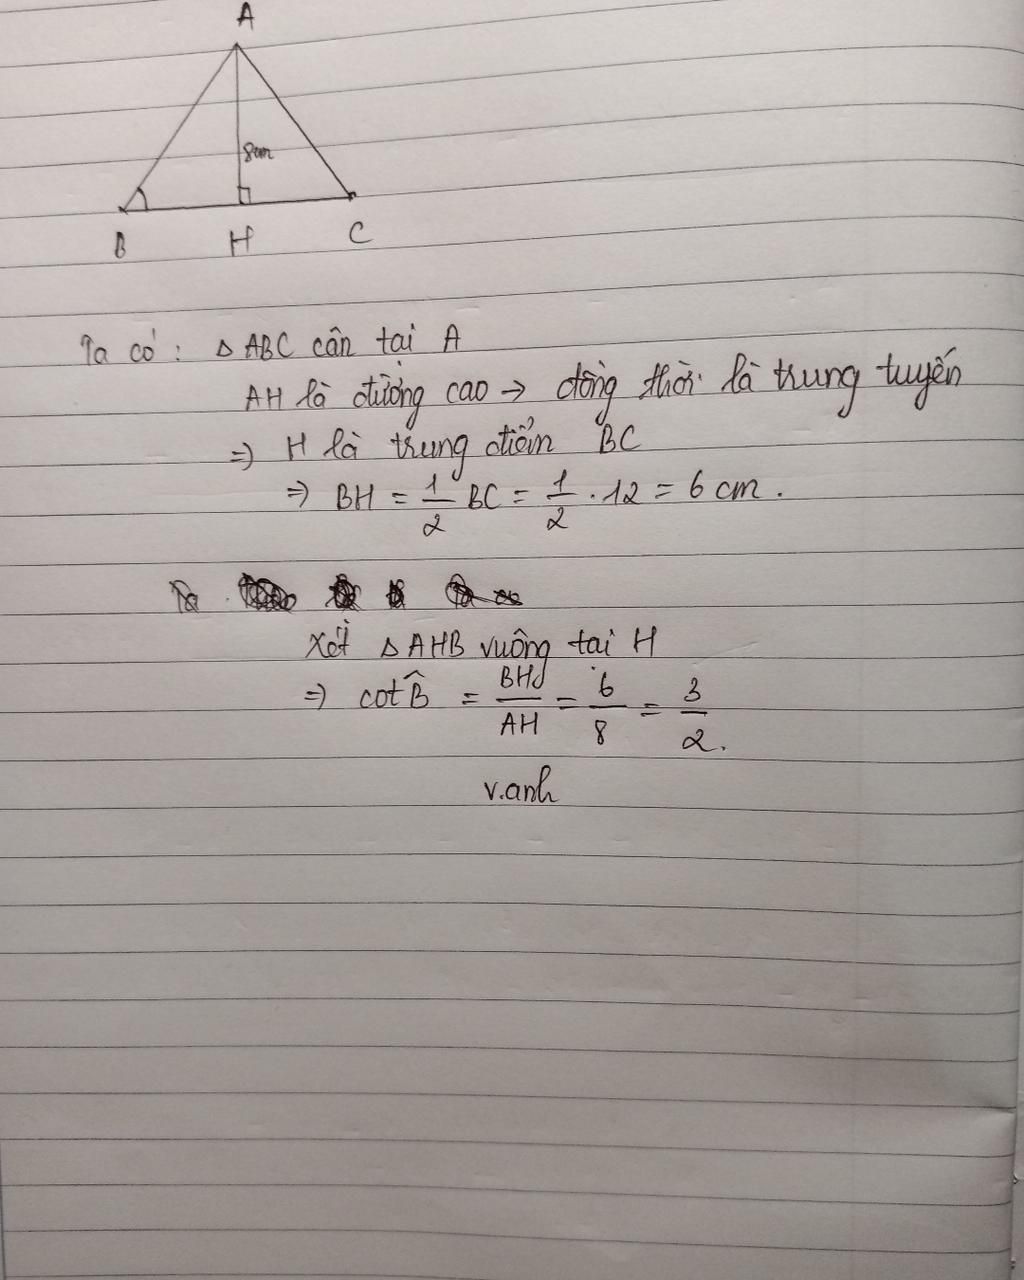 A
8cm
B H C
Ta có : △ ABC cân tại A
AH là đường cao → đồng thời là trung tuyến
=> H là trung điểm BC
=> BH = 1/2 BC = 1/2 . 12 = 6 cm .
Ta
Xét △ AHB vuông tại H
=> cot B̂ = BH/AH = 6/8 = 3/2.
v.anh